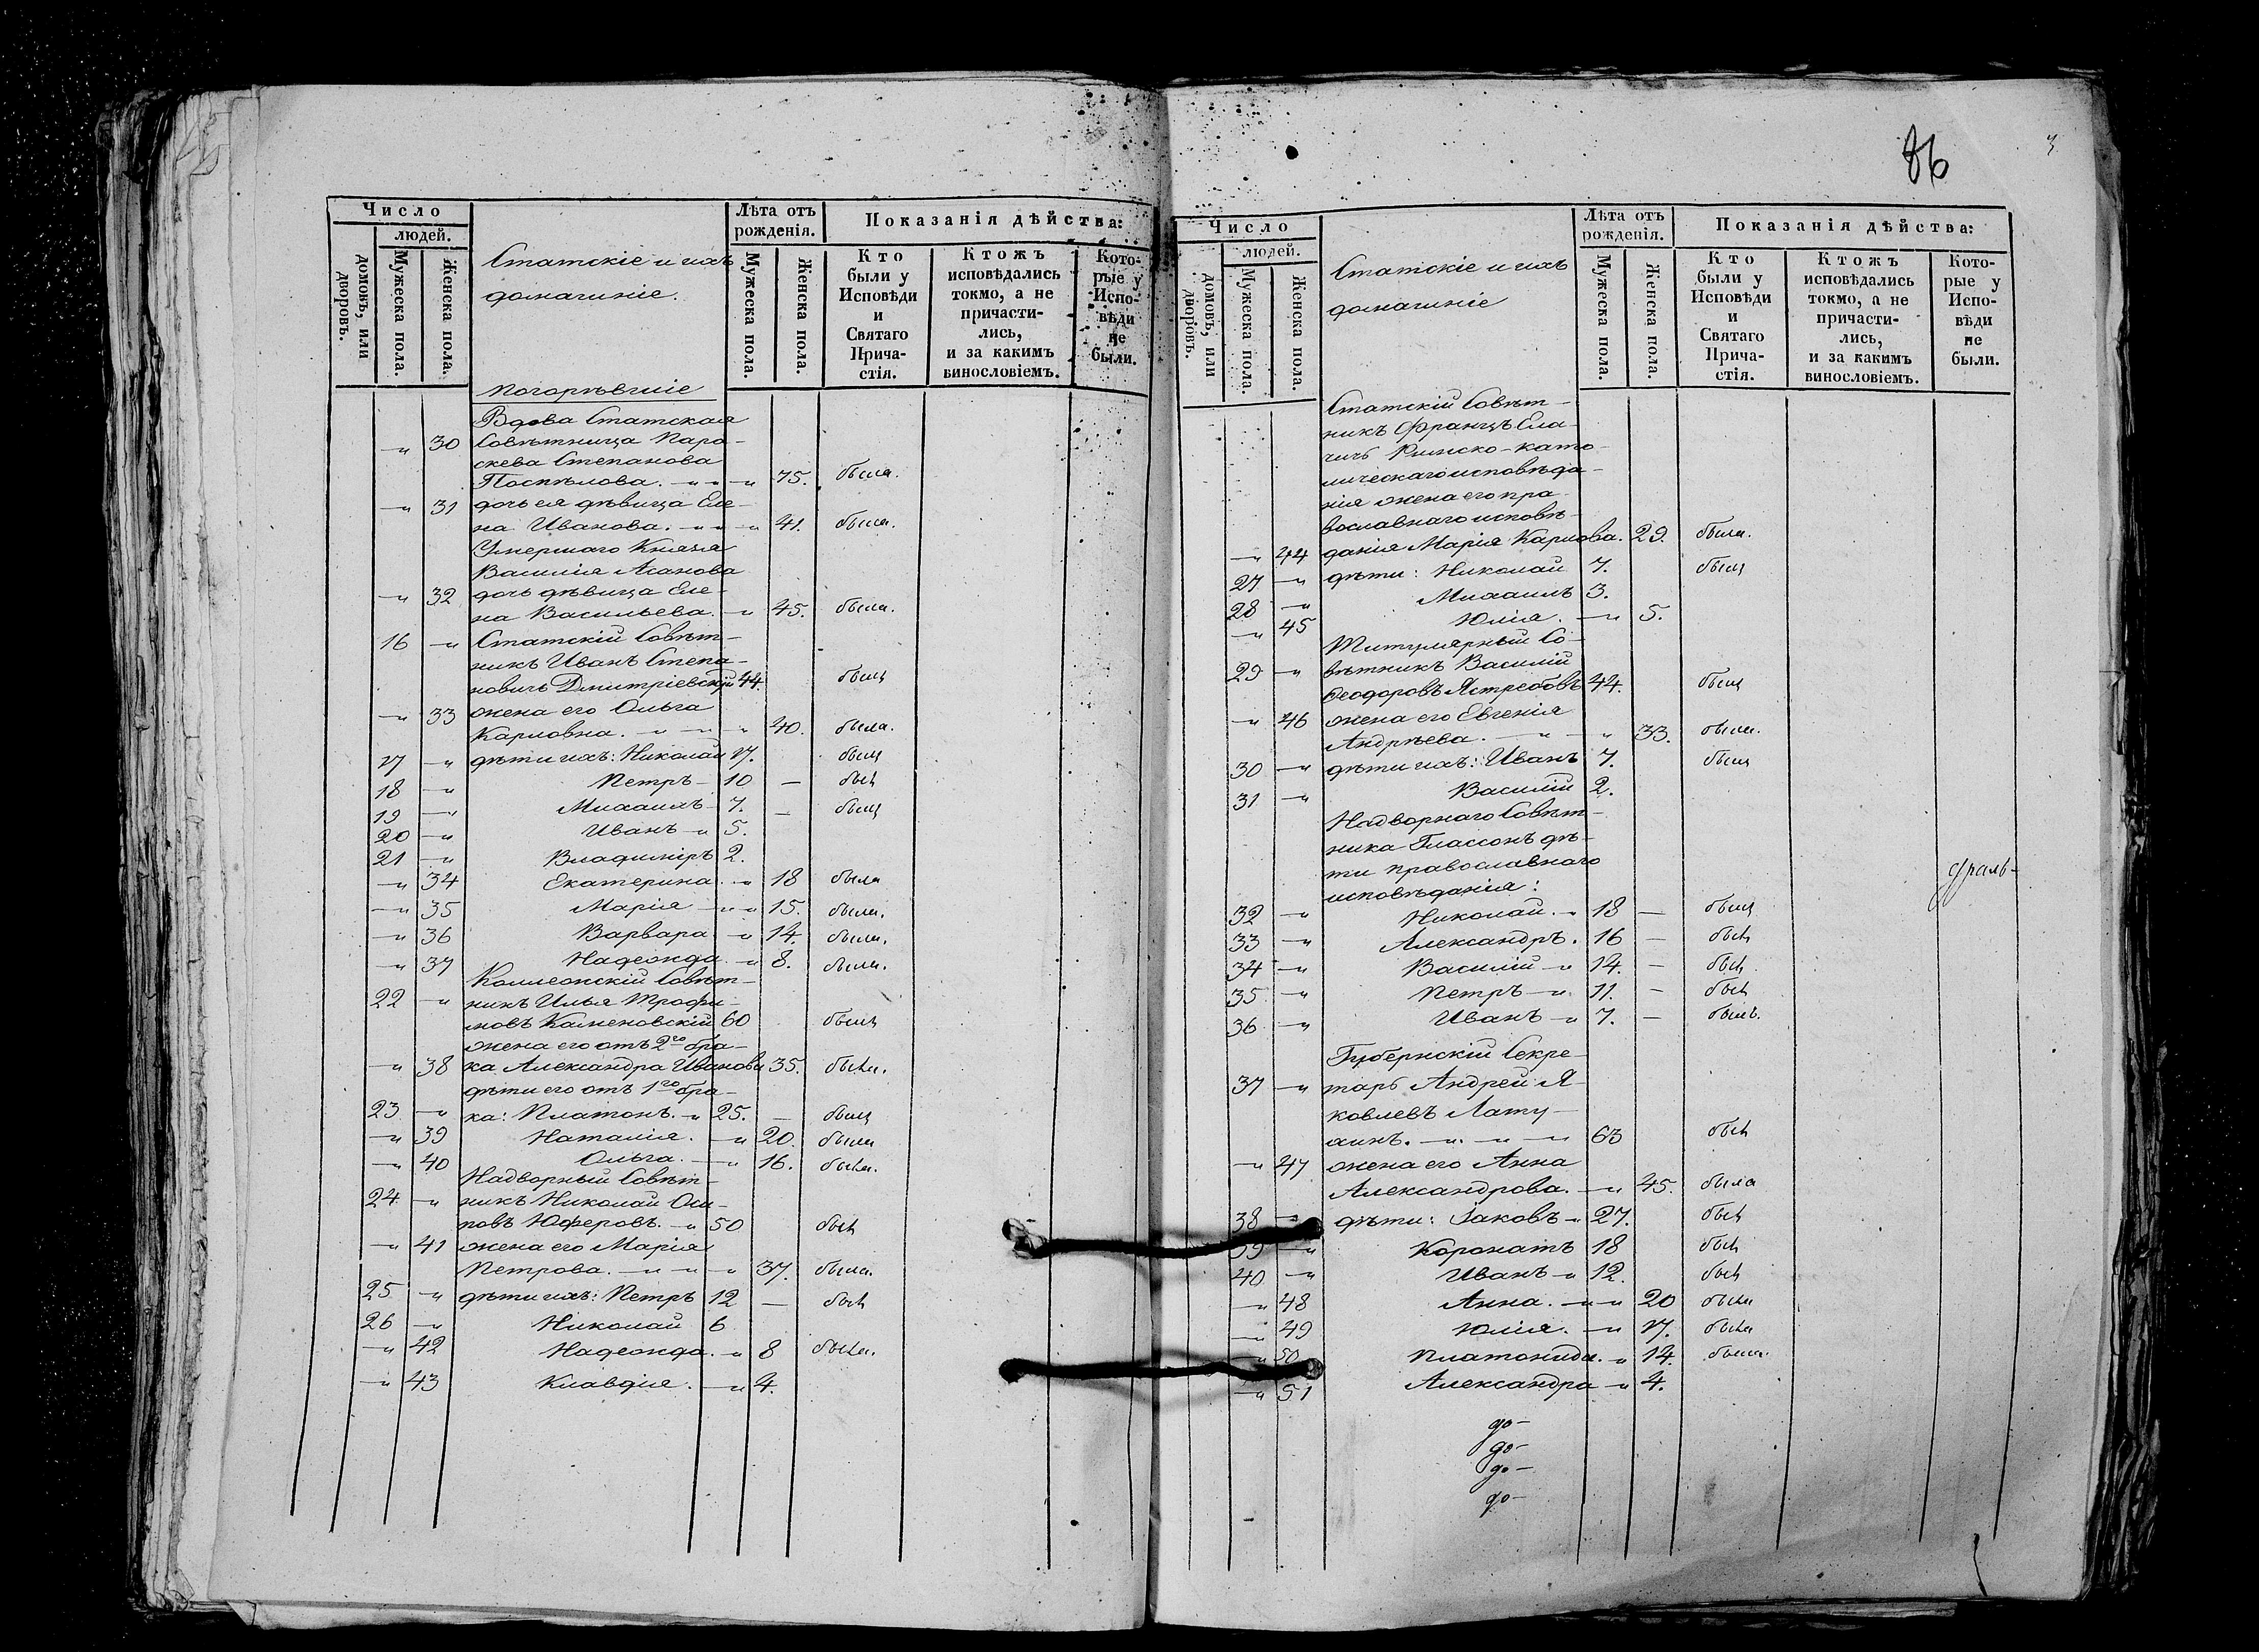 Число
людей.
домовъ, или дворовъ.
Мужеска пола.
Женска пола.
Статскіе и ихъ
домашніе.
Погорѣвшіе
Лѣта отъ
рожденія.
Мужеска пола.
Женска пола.
Показанія дѣйства:
Кто
были у
Исповѣди
и
Святаго
Прича-
стія.
Ктожъ
исповѣдались
токмо, а не
причасти-
лись,
и за какимъ
винословіемъ.
Кото-
рые у
Испо-
вѣди
не
были.
Вдова Статская
30 Совѣтница Пара-
скева Степанова
Поспѣлова. 75. была.
31 дочь ея дѣвица Еле-
на Иванова. 41. была.
Умершаго Князя
Василія Асанова
32 дочь дѣвица Еле-
на Васильева. 45. была.
16 Статскій Совѣт-
никъ Иванъ Степа-
новичъ Дмитріевскій 44. былъ
33 жена его Ольга
Карловна. 40. была.
17 дѣти ихъ: Николай 17. былъ
18 Петръ 10 былъ
19 Михаилъ 7. былъ
20 Иванъ 5.
21 Владиміръ 2.
34 Екатерина 18 была
35 Марія 15. была.
36 Варвара 14. была.
37 Надежда 8. была.
Коллежскій Совѣт-
22 никъ Илья Трофи-
мовъ Каменовскій 60 былъ
жена его отъ 2го бра-
38 ка Александра Иванова 35. была.
дѣти его отъ 1го бра-
23 ка: Платонъ. 25. былъ
39 Наталія. 20. была
40 Ольга. 16. была.
Надворный Совѣт-
24 никъ Николай Оси-
повъ Юферовъ. 50 былъ
41 жена его Марія
Петрова. 37. была.
25 дѣти ихъ: Петръ 12 былъ
26 Николай 6
42 Надежда. 8 была.
43 Клавдія. 4.
86
3
Число
людей.
домовъ, или дворовъ.
Мужеска пола.
Женска пола.
Статскіе и ихъ
домашніе
Лѣта отъ
рожденія.
Мужеска пола.
Женска пола.
Показанія дѣйства:
Кто
были у
Исповѣди
и
Святаго
Прича-
стія.
Ктожъ
исповѣдались
токмо, а не
причасти-
лись,
и за какимъ
винословіемъ.
Кото-
рые у
Испо-
вѣди
не
были.
Статскій Совѣт-
никъ Францъ Ела-
чичъ Римско-като-
лическаго исповѣда-
нія жена его пра-
вославнаго исповѣ-
44 данія Марія Карлова. 29. была.
27 дѣти: Николай 7. былъ
28 Михаилъ 3.
45 Юлія. 5.
Титулярный Со-
29 вѣтникъ Василій
Ѳеодоровъ Ястребовъ 44. былъ
46 жена его Евгенія
Андрѣева. 33. была.
30 дѣти ихъ: Иванъ 7. былъ
31 Василій 2.
Надворнаго Совѣт-
ника Глассонъ дѣ-
ти православнаго
исповѣданія:
32 Николай. 18 былъ
33 Александръ. 16 былъ
34 Василій 14. былъ.
35 Петръ 11. былъ
36 Иванъ 7. былъ.
Губернскій Секре-
37 тарь Андрей Я-
ковлевъ Лату-
хинъ. 63 былъ
47 жена его Анна
Александрова. 45. была
38 дѣти: Іаковъ 27. былъ
39 Коронатъ 18 былъ
40 Иванъ 12. былъ
48 Анна. 20 была
49 Юлія. 17. была
50 Платонида. 14. была.
51 Александра 4.
до-
до-
до-
до-